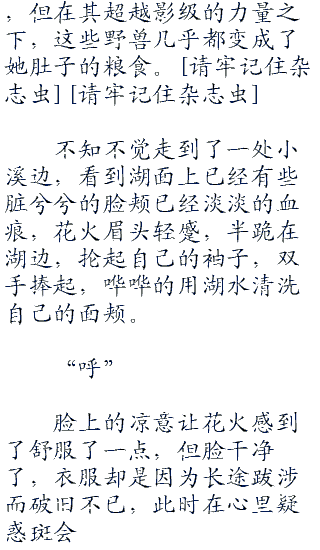 ，但在其超越影级的力量之
下，这些野兽几乎都变成了
她肚子的粮食。[请牢记住杂
志虫][请牢记住杂志虫]
不知不觉走到了一处小
溪边，看到湖面上已经有些
脏兮兮的脸颊已经淡淡的血
痕，花火眉头轻蹙，半跪在
湖边，抡起自己的袖子，双
手捧起，哗哗的用湖水清洗
自己的面颊。
“呼”
脸上的凉意让花火感到
了舒服了一点，但脸干净
了，衣服却是因为长途跋涉
而破旧不已，此时在心里疑
惑斑会